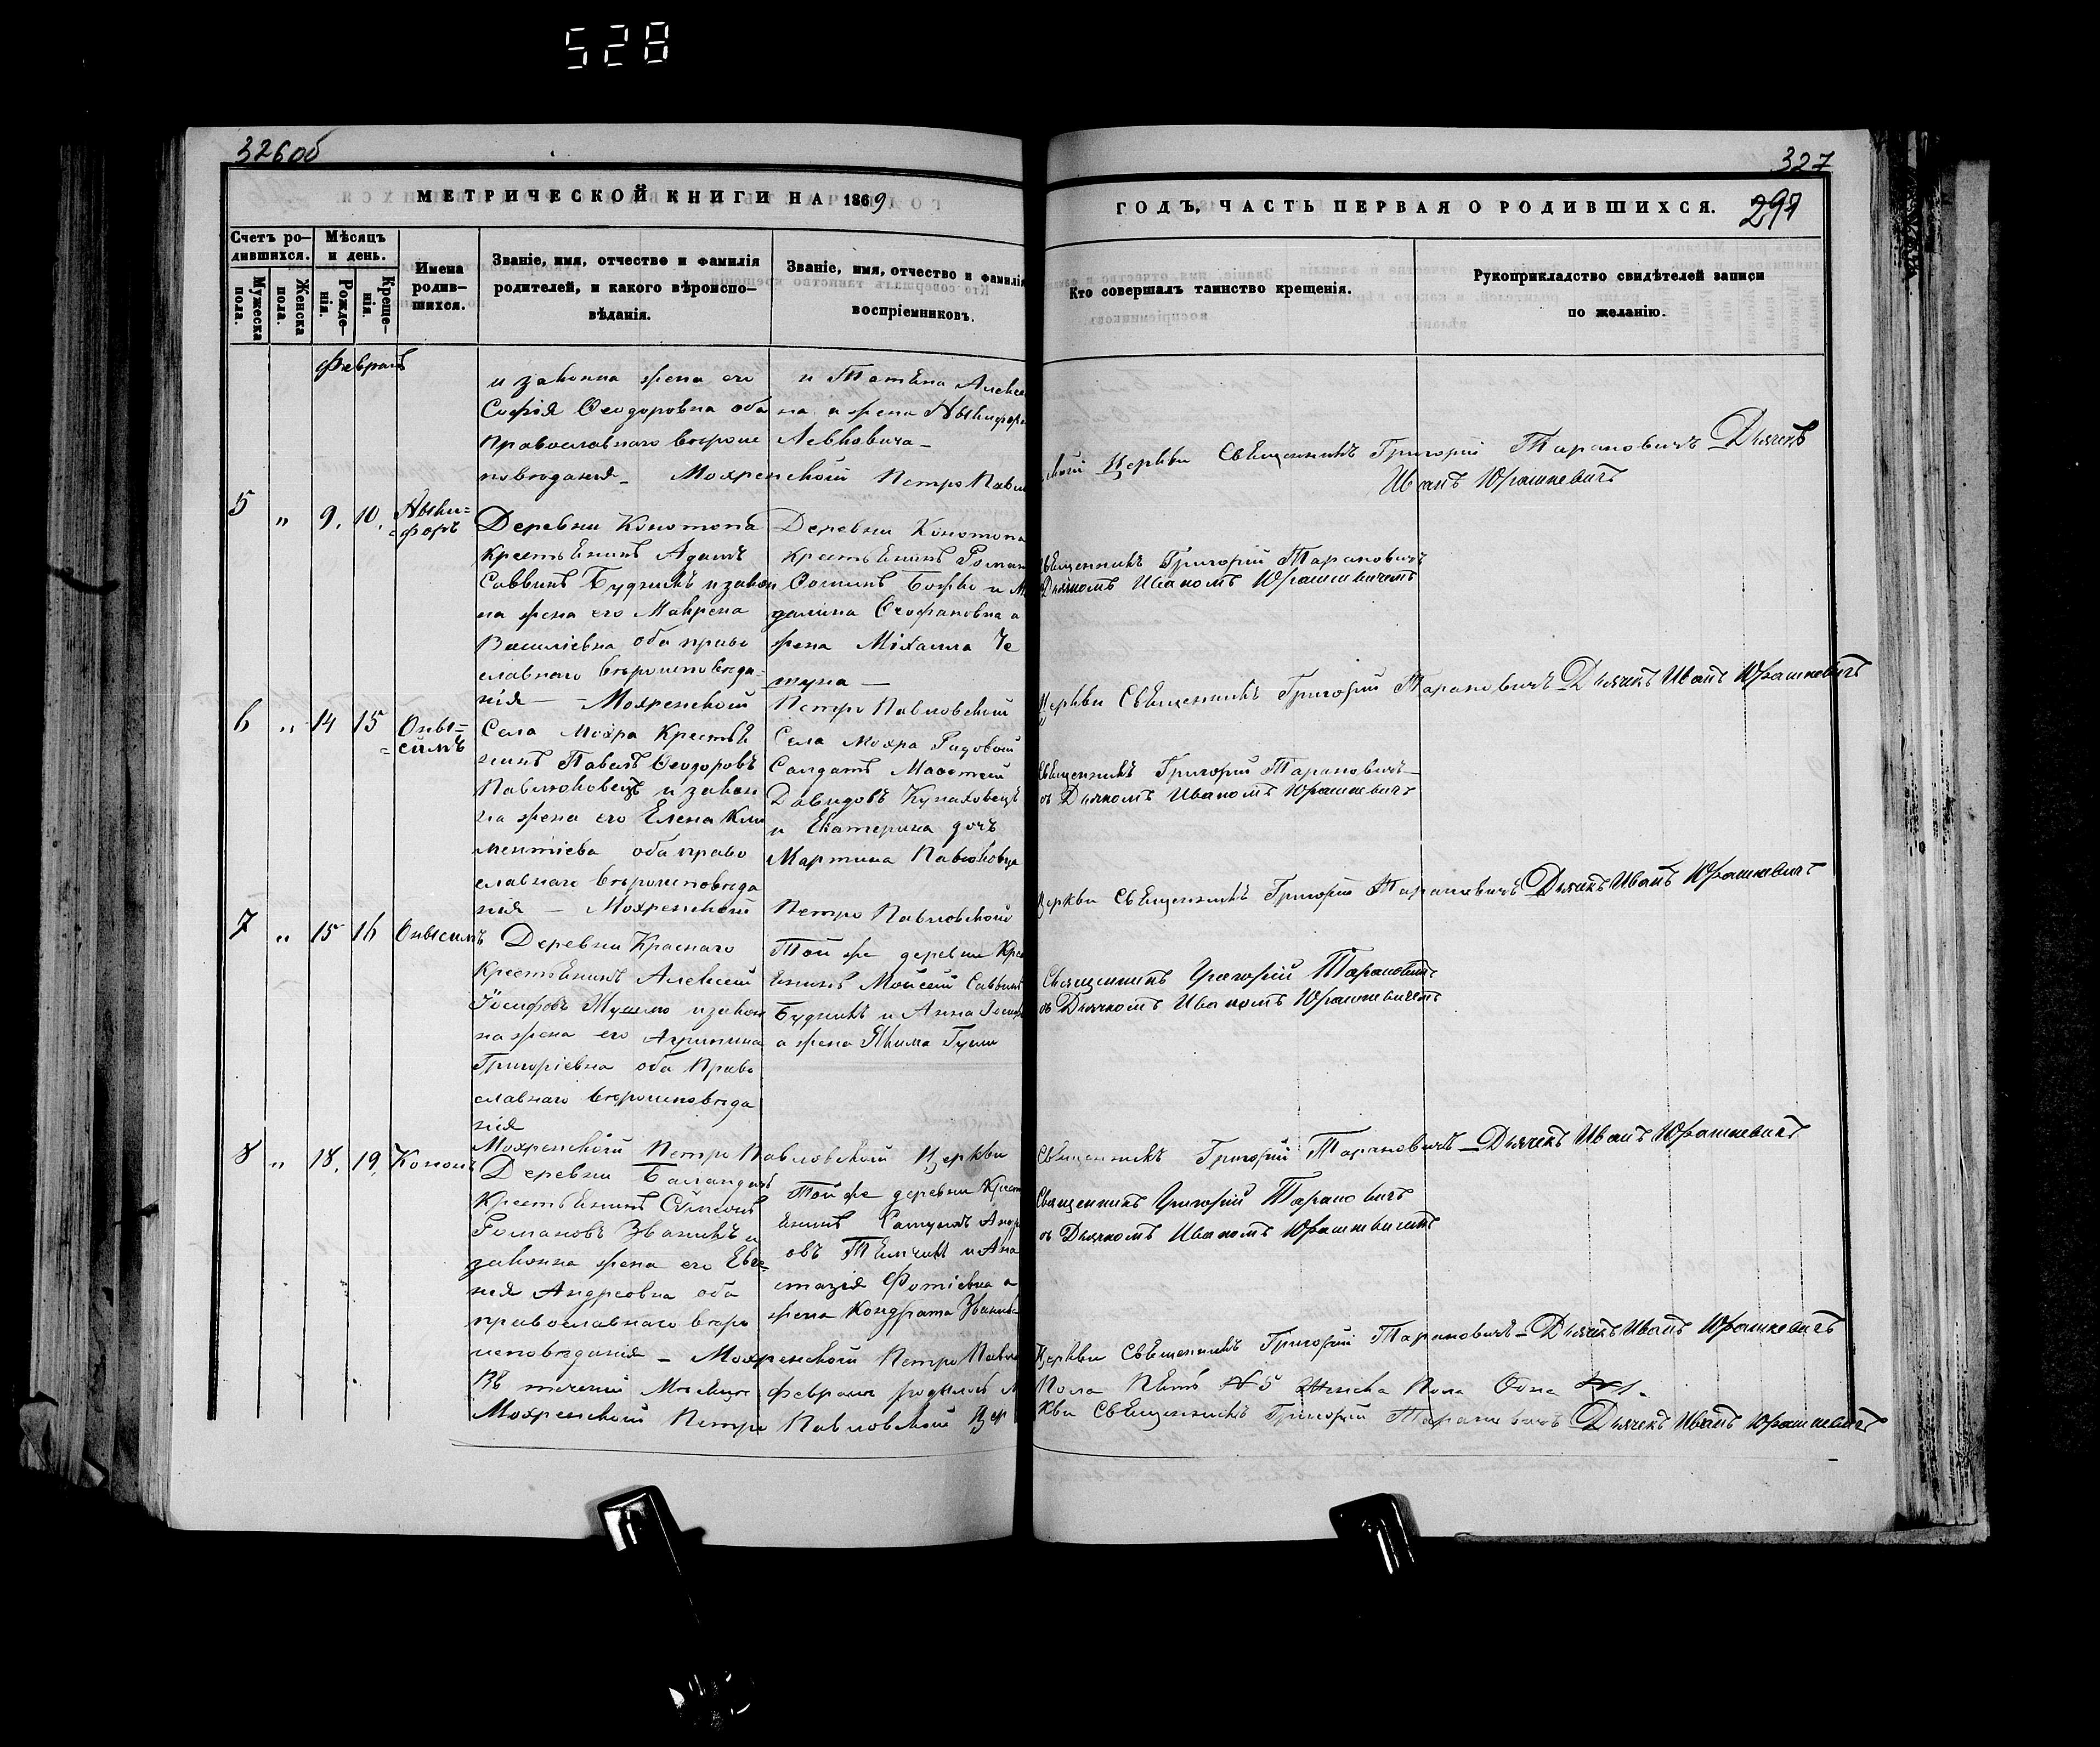 528
326об
327
МЕТРИЧЕСКОЙ КНИГИ НА 1869
ГОДЪ, ЧАСТЬ ПЕРВАЯ О РОДИВШИХСЯ.
297
Счетъ ро-
дившихся.
Мужеска
пола.
Женска
пола.
Мѣсяцъ
и день.
Рожде-
нія.
Креще-
нія.
Имена
родив-
шихся.
Званіе, имя, отчество и фамилія
родителей, и какого вѣроиспо-
вѣданія.
Званіе, имя, отчество и фамилія
воспріемниковъ.
Кто совершалъ таинство крещенія.
Рукоприкладство свидѣтелей записи
по желанію.
Февраль
и законна жена его
Софія Ѳеодоровна оба
православнаго вѣроис
повѣданія_ Мохренской Петро Павл
и Татьяна Алекс
на а жена
Левковича_
Церкви Священникъ Григорій Тарановичъ_ Дьячекъ
Иванъ Юрашкевичъ
5 " 9. 10.
=форъ
Деревни Конотопа
Крестьянинъ Адамъ
Саввинъ Будникъ и закон
на жена его Маврена
Василіевна оба право
славнаго вѣроисповѣда-
нія — Мохренской
Деревни Конотопа
Крестьянинъ Роман
Божко и
Ѳеофановна а
жена Міхаила Че
туна —
Петро Павловской
Священникъ Григорій Тарановичъ
Дьячкомъ Иваномъ Юрашкевичемъ
Церкви Священникъ Григорій Тарановичъ_ Дьячекъ Иванъ Юрашкевичъ
6 " 14 15 Онис=
=симъ
Села Мохра Крестья
нинъ Павелъ Ѳеодоровъ
Павлюковецъ и закон
на жена его Елена Кли
ментіева оба право
славнаго вѣроисповѣда
нія — Мохренской
Села Мохра Рядовой
Солдатъ
Давидовъ
и Екатерина дочь
Мартина Павлюковца
Петро Павловской
Священникъ Григорій Тарановичъ—
съ Дьячкомъ Иваномъ Юрашкевич
Церкви Священникъ Григорій Тарановичъ_ Дьячекъ Иванъ Юрашкевичъ
7 " 15 16 Онисимъ
Деревни Краснаго
Крестьянинъ Алексей
Іосифовъ и закон
на жена его Агрипина
Григоріевна оба Право
славнаго вѣроисповѣда
нія
Той же деревни Крес
янинъ Мойсей Саввинъ
Будникъ и Анна
а жена Якима
Священникъ Григорій Тарановичъ
съ Дьячкомъ Иваномъ Юрашкевичемъ
Мохренской Петро Павловской Церкви
Священникъ Григорій Тарановичъ_ Дьячекъ Иванъ Юрашкевичъ
8 " 18. 19. Кононъ
Деревни
Крестьянинъ Сѵмеонъ
Романовъ Званикъ и
законна жена его Евге-
нія Андреовна оба
православнаго вѣро
исповѣданія _ Мохренской Петро Павл
Той же деревни Крест
янинъ
овъ и Ана
стазія Фотіевна а
жена Кондрата
Священникъ Григорій Тарановичъ
съ Дьячкомъ Иваномъ Юрашкевичемъ
Церкви Священникъ Григорій Тарановичъ_ Дьячекъ Иванъ Юрашкевичъ
Въ теченіи Мѣсяца февраля родилось М
Пола Пять №5 Женска Пола Одна №1.
Мохренской Петро Павловской Цер
кви Священникъ Григорій Тарановичъ Дьячекъ Иванъ Юрашкевичъ